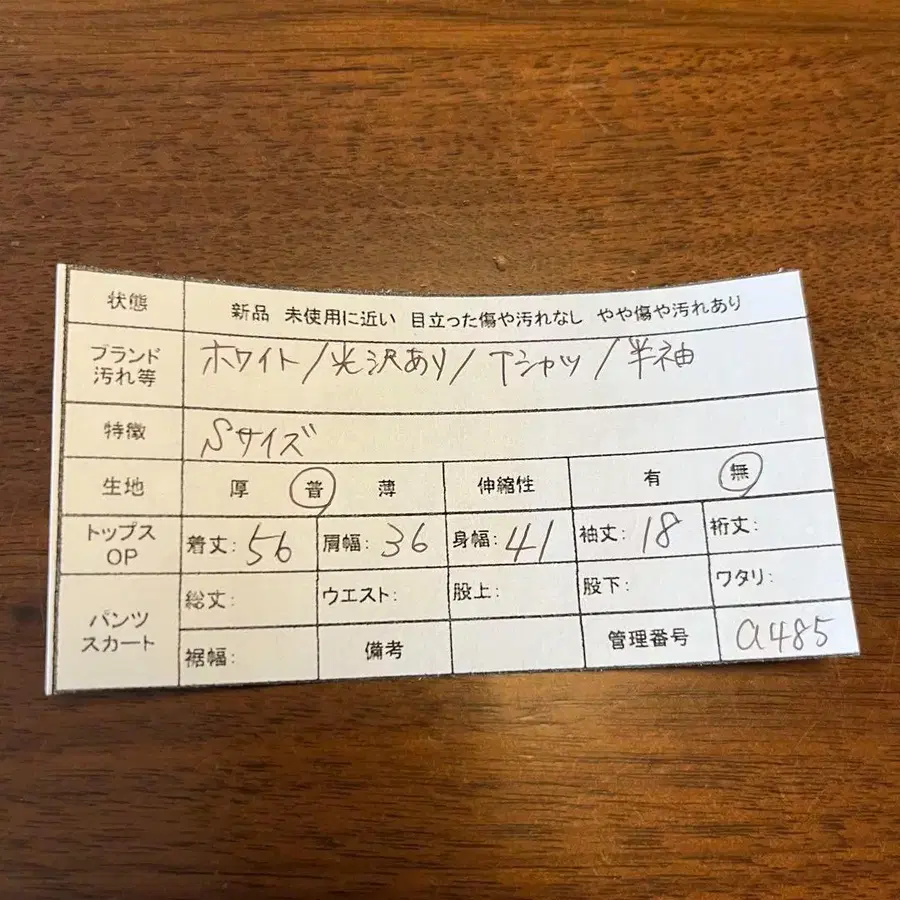 状態 新品 未使用に近い 目立った傷や汚れなし やや傷や汚れあり
ブランド
汚れ等 ホワイト/光沢あり/Tシャツ/半袖
特徴 Sサイズ
生地 厚 普 薄 伸縮性 有 無
トップス
OP 着丈: 56 肩幅: 36 身幅: 41 袖丈: 18 裄丈:
パンツ
スカート 総丈: ウエスト: 股上: 股下: ワタリ:
裾幅: 備考 管理番号 a485